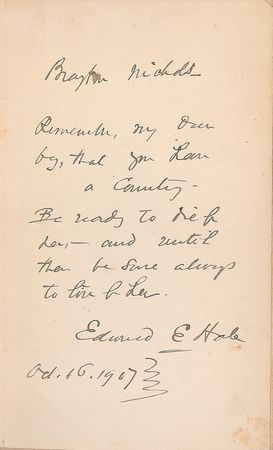 Brayton Nichols
Remember, my dear
boy, that you have
a Country -
Be ready to die for
her, - and until
then be sure always
to live for her.
Edward E Hale
Oct. 16. 1907